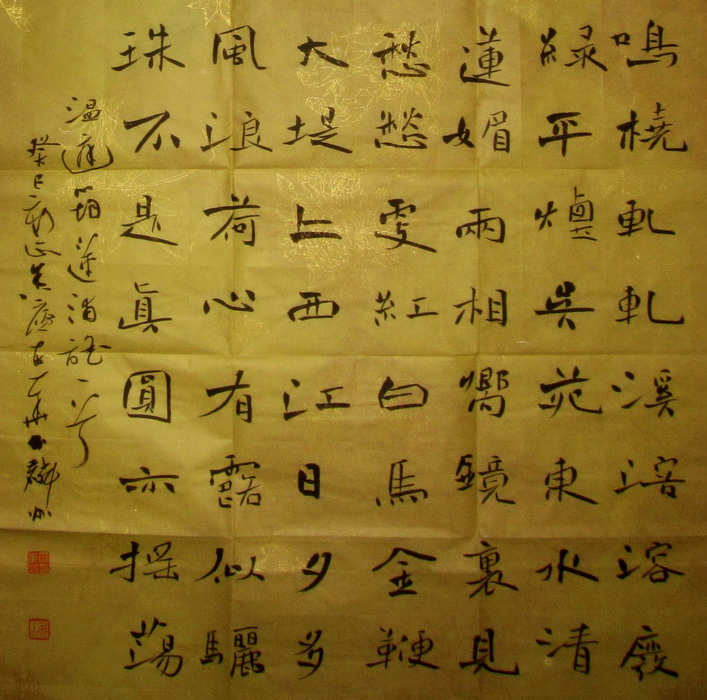 鳴橈軋軋溪溶溶廢
綠平煙吳苑東水清
蓮媚兩相嚮鏡裏見
愁愁更紅白馬金鞭
大堤上西江日夕多
風浪荷心有露似驪
珠不是眞圓亦搖蕩
温庭筠蓮浦謠一首
癸巳新正